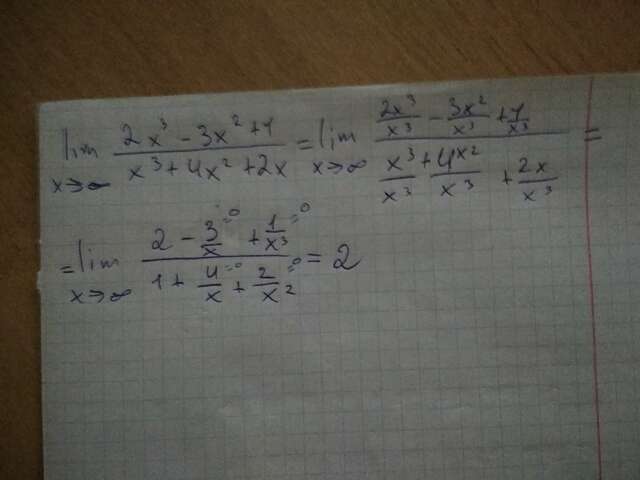 lim x→∞ (2x³ - 3x² + 1)/(x³ + 4x² + 2x) = lim x→∞ (2x³/x³ - 3x²/x³ + 1/x³)/(x³/x³ + 4x²/x³ + 2x/x³) =
= lim x→∞ (2 - 3/x⁼⁰ + 1/x³⁼⁰)/(1 + 4/x⁼⁰ + 2/x²⁼⁰) = 2